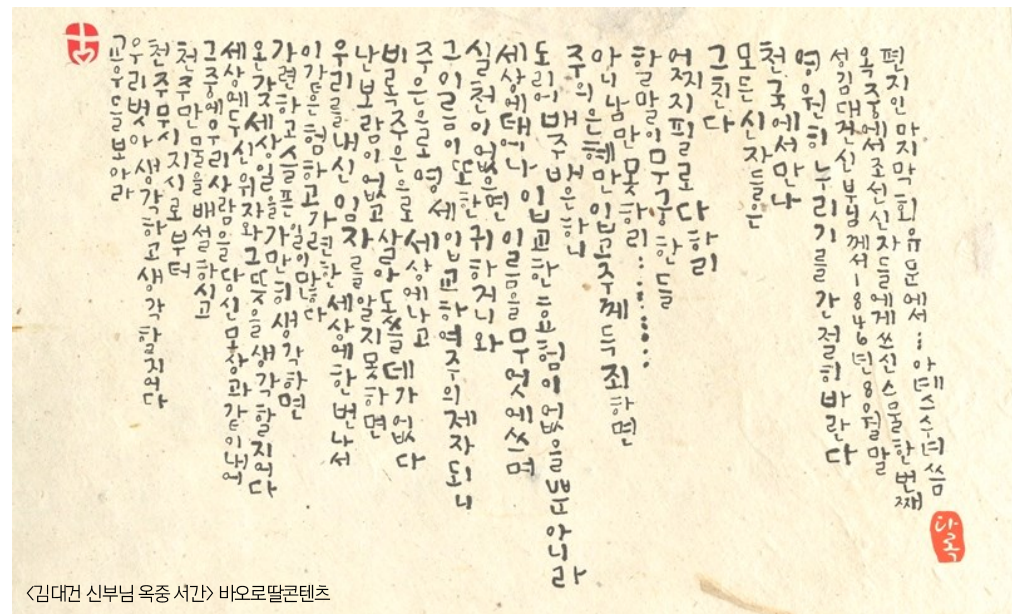 교우들 보아라
우리 벗아 생각하고 생각할지어다
천주 무시지시로부터
천주만물을 배설하시고
그 중에 우리 사람을 당신 모상과 같이 내어
세상에 두신 위자와 그 뜻을 생각할지어다
온갖 세상일을 가만히 생각하면
가련하고 슬픈 일이 많다
이같은 험하고 가련한 세상에 한 번 나서
우리를 내신 임자를 알지 못하면
난 보람이 없고 살아도 쓸데가 없다
비록 주은으로 세상에 나고
주은으로 영세 입교하여 주의 제자되니
그 이름이 또한 귀하거니와
실천이 없으면 이름을 무엇에 쓰며
세상에 태어나 입교한 효험이 없을 뿐 아니라
도리어 배주배은하니
주의 은혜만 입고 주께 득죄하면
아니 남만 못하리.......
할 말이 무궁한들
어찌 지필로 다하리
그친다
모든 신자들은
천국에서 만나
영원히 누리기를 간절히 바란다
성 김대건 신부님께서 1846년 8월 말
옥중에서 조선 신자들에게 쓰신 스물한 번째
편지인 마지막 회유문에서... 아녜스수녀 씀
<김대건 신부님 옥중 서간> 바오로딸콘텐츠